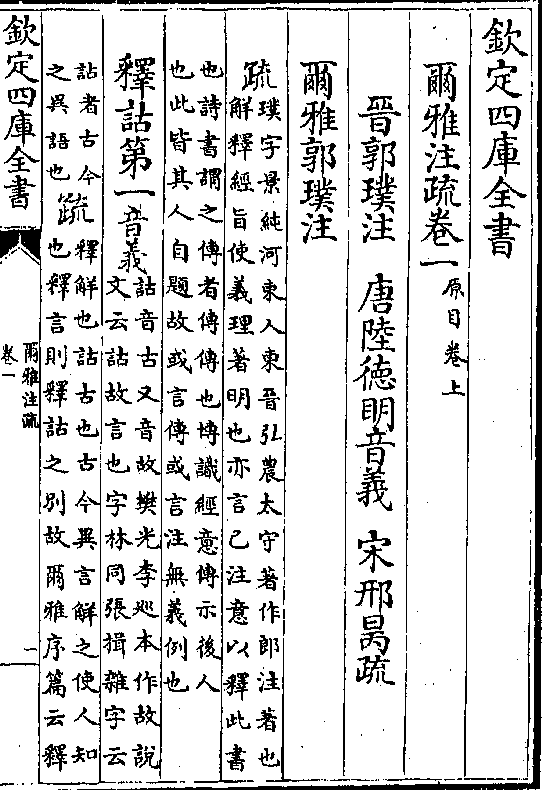 欽定四庫全書
爾雅注疏卷一 原目卷上
晉郭璞注 唐陸德明音義 宋邢昺疏
爾雅郭璞注
疏 璞字景純河東人東晉弘農太守著作郎注著也
解釋經旨使義理著明也亦言己注意以釋此書
也詩書謂之傳者傳傳也博識經意傳示後人
也此皆其人自題故或言傳或言注無義例也
釋詁第一 音義 詁音古又音故樊光李廵本作故說
文云詁故言也字林同張揖雜字云
詁者古今
之異語也 疏 釋解也詁古也古今異言解之使人知
也釋言則釋詁之別故爾雅序篇云釋
欽定四庫全書
爾雅注疏
卷一
一